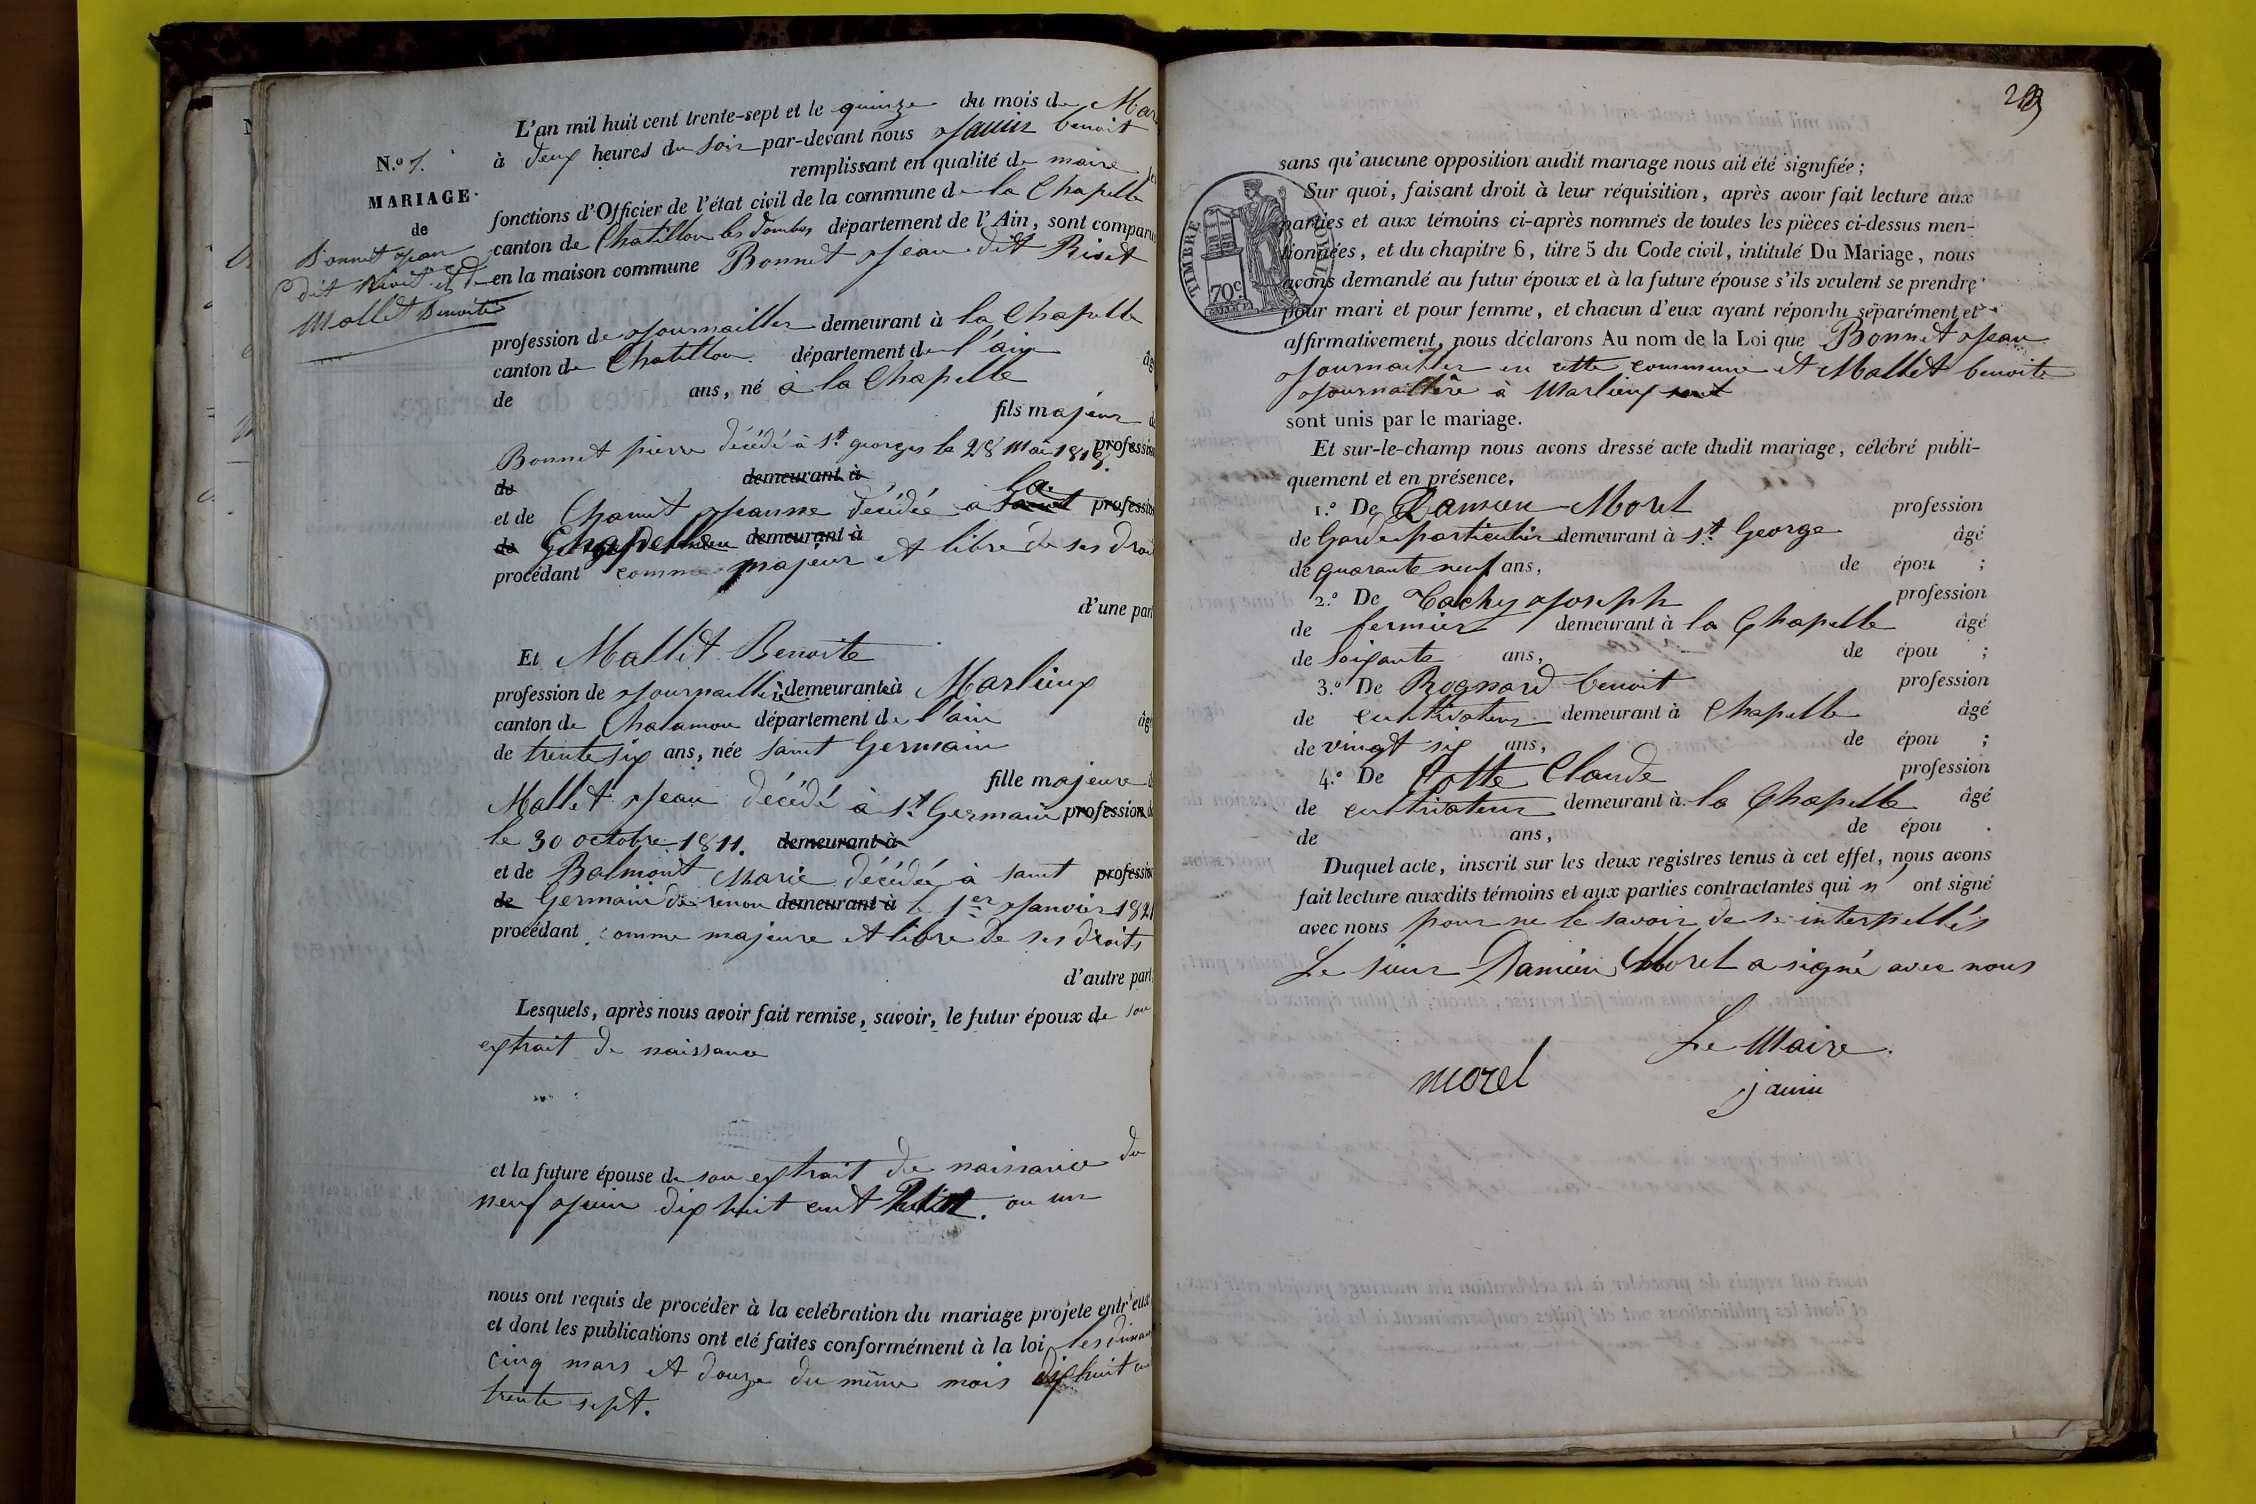 N.o 7.
MARIAGE
de
Bonnet Jean
dit Riset et de
Mallet Benoite
L'an mil huit cent trente-sept et le quinze du mois de Mars
à deux heures du soir par-devant nous Janin benoit
remplissant en qualité de maire les
fonctions d'Officier de l'état civil de la commune de la Chapelle
canton de Chatillon les dombes département de l'Ain, sont comparus
en la maison commune Bonnet Jean dit Riset
profession de Journaillier demeurant à la Chapelle
canton de Chatillon département de l'ain âgé
de ans, né à la Chapelle
fils majeur de
Bonnet pierre décédé à St. georges le 28 Mai profession
de demeurant à
et de Jeanne décédée à la profession
de Chapelle demeurant à
procédant comme majeur et libre de ses droits
d'une part
Et Mallet Benoite
profession de Journaillière demeurante à Marlieux
canton de Chalamon département de l'ain âgé
de trente six ans, née saint Germain
fille majeure de
Mallet Jean décédé à St. Germain profession de
le 30 octobre 1811. demeurant à
et de Balmont Marie décédée à saint profession
de Germain de renon demeurant à le 1er Janvier
procédant comme majeure et libre de ses droits
d'autre part
Lesquels, après nous avoir fait remise, savoir, le futur époux de son
extrait de naissance
et la future épouse de son extrait de naissance du
neuf Juin dix huit cent ou un
nous ont requis de procéder à la celébration du mariage projeté entr'eux
et dont les publications ont été faites conformément à la loi les dimanches
cinq mars et douze du même mois dix huit cent
trente sept.
sans qu'aucune opposition audit mariage nous ait été signifiée;
Sur quoi, faisant droit à leur réquisition, après avoir fait lecture aux
parties et aux témoins ci-après nommés de toutes les pièces ci-dessus men-
tionnées, et du chapitre 6, titre 5 du Code civil, intitulé Du Mariage, nous
avons demandé au futur époux et à la future épouse s'ils veulent se prendre
pour mari et pour femme, et chacun d'eux ayant répondu séparément et
affirmativement, nous déclarons Au nom de la Loi que Bonnet Jean
Journaillier en cette commune et Mallet benoite
Journaillière à Marlieux sont
sont unis par le mariage.
Et sur-le-champ nous avons dressé acte dudit mariage, célébré publi-
quement et en présence,
1.o De Damien Morel profession
de Garde particulier demeurant à St. George âgé
de quarante neuf ans, de épou ;
2.o De Cachy Joseph profession
de fermier demeurant à la Chapelle âgé
de soixante ans, de épou ;
3.o De Rognard benoit profession
de cultivateur demeurant à Chapelle âgé
de vingt six ans, de épou ;
4.o De Cotte Claude profession
de cultivateur demeurant à la Chapelle âgé
de ans, de épou .
Duquel acte, inscrit sur les deux registres tenus à cet effet, nous avons
fait lecture auxdits témoins et aux parties contractantes qui n' ont signé
avec nous pour ne le savoir de se interpellés
Le sieur Damien Morel a signé avec nous
Le Maire.
morel
janin
TIMBRE
70c.